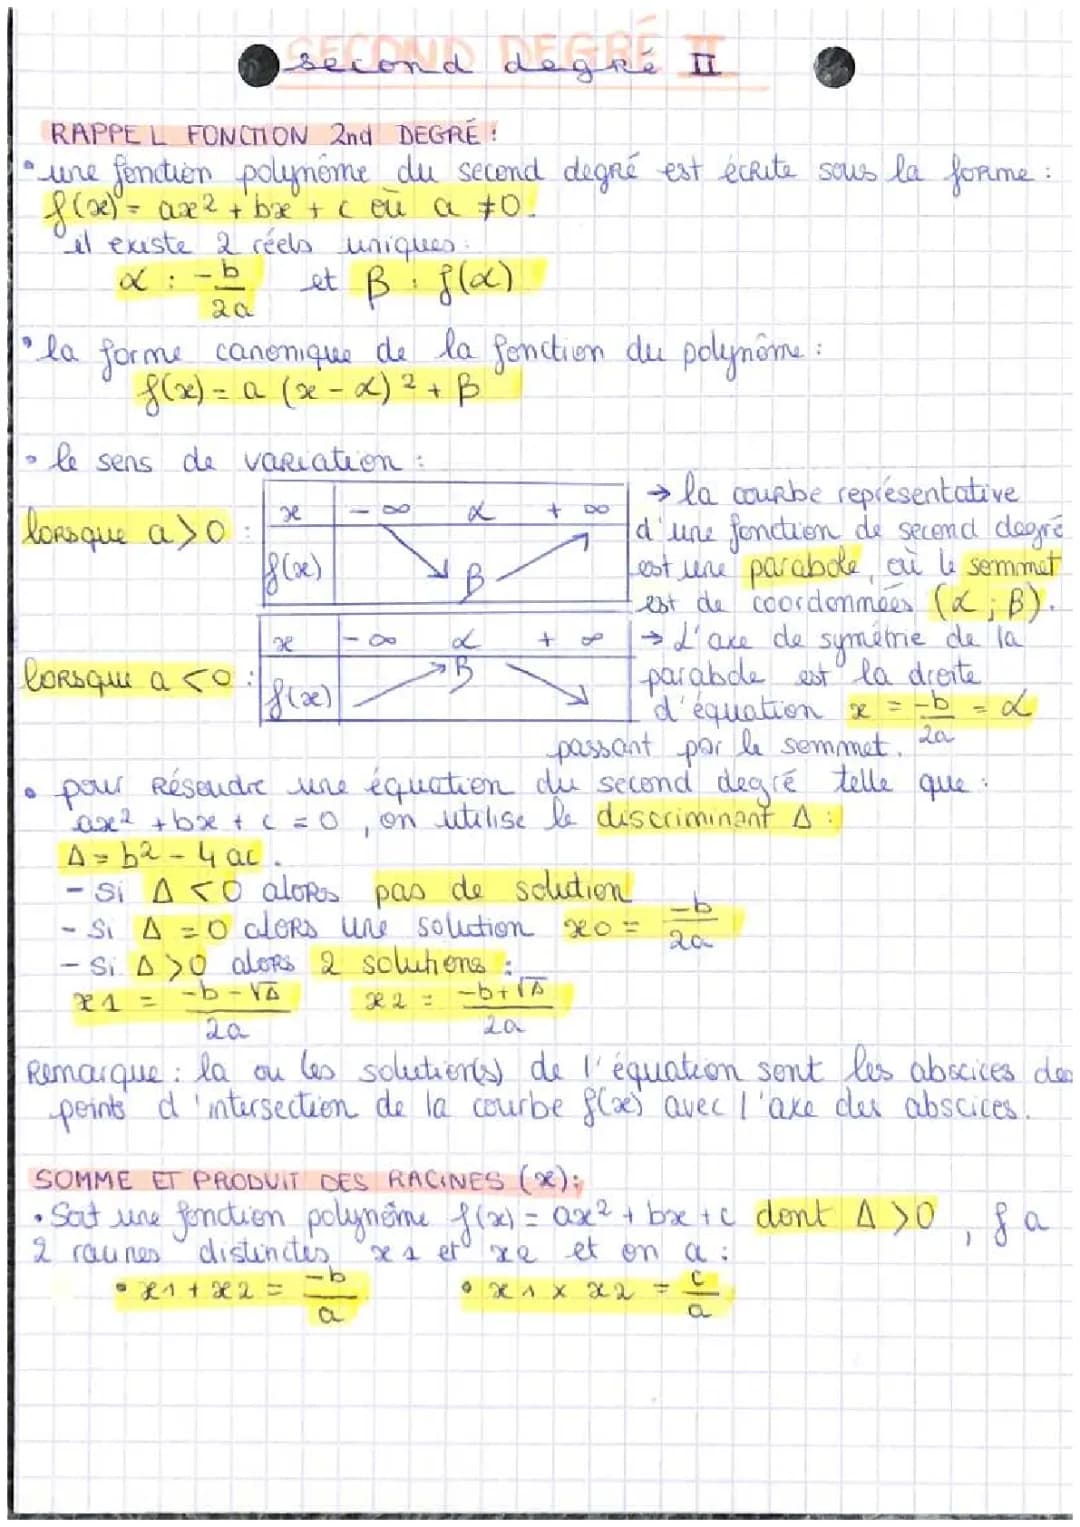 SECOND DEGRÉ II
second degré II
RAPPEL FONCTION 2nd DEGRÉ :
• une fonction polynôme du second degré est écrite sous la forme :
f(x) = ax² + bx + c où a ≠ 0.
il existe 2 réels uniques :
α : -b/2a et β : f(α)
• la forme canonique de la fonction du polynôme :
f(x) = a (x - α)² + β
• le sens de variation :
lorsque a > 0 :
x | -∞ α +∞
f(x) | ↘ β ↗
→ la courbe représentative
d'une fonction de second degré
est une parabole, où le sommet
est de coordonnées (α ; β).
lorsque a < 0 :
x | -∞ α +∞
f(x) | ↗ β ↘
→ L'axe de symétrie de la
parabole est la droite
d'équation x = -b/2a = α
passant par le sommet.
• pour résoudre une équation du second degré telle que :
ax² + bx + c = 0, on utilise le discriminant Δ :
Δ = b² - 4ac.
- Si Δ < 0 alors pas de solution
- Si Δ = 0 alors une solution x0 = -b/2a
- Si Δ > 0 alors 2 solutions :
x1 = -b-√Δ/2a x2 = -b+√Δ/2a
Remarque : la ou les solution(s) de l'équation sont les abscices des
points d'intersection de la courbe f(x) avec l'axe des abscices.
SOMME ET PRODUIT DES RACINES (x) :
• Soit une fonction polynôme f(x) = ax² + bx + c dont Δ > 0, f a
2 racines distinctes x1 et x2 et on a :
• x1 + x2 = -b/a • x1 × x2 = c/a